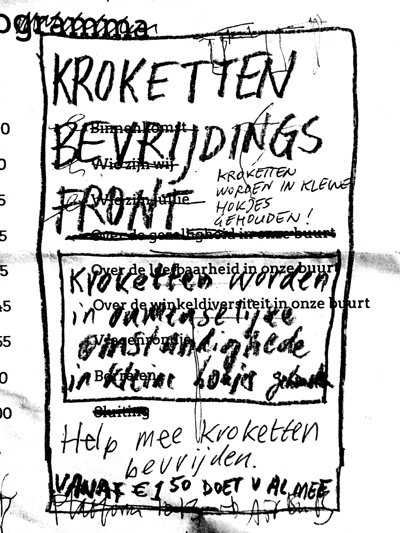 ogramma
KROKETTEN
BEVRIJDINGS
FRONT
KROKETTEN
WORDEN IN KLEINE
HOKJES
GEHOUDEN!
Binnenkomst
Wie zijn wij
Wie zijn jullie
Over de gezelligheid in onze buurt
Over de leefbaarheid in onze buurt
Over de winkeldiversiteit in onze buurt
Vragenrondje
Borrelen
Sluiting
Kroketten worden
in onmenselijke
omstandighede
in kleine hokjes gehouden
Help mee kroketten
bevrijden.
VANAF € 1 50 DOET U AL MEE
Platform